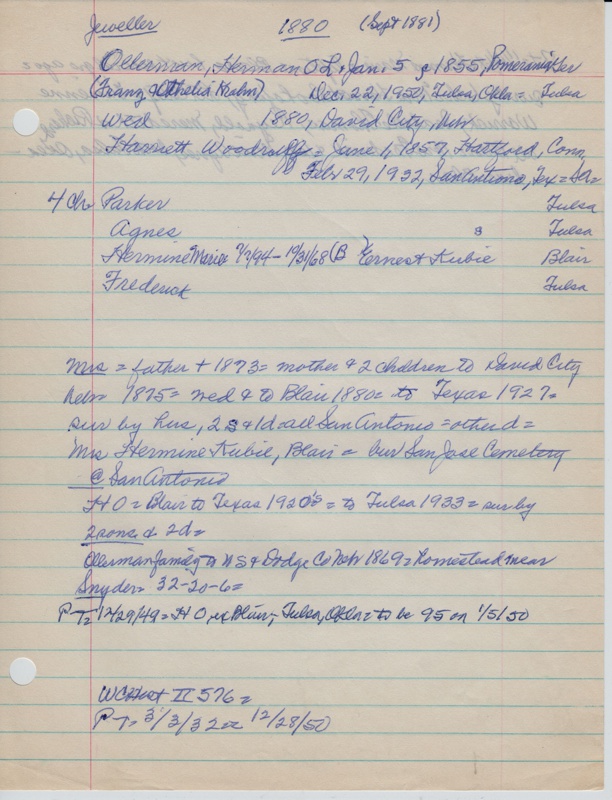 Jeweller 1880 (Sept 1881)
Ollerman, Herman O L * Jan. 5, 1855, Pomerania Ger
(Franz & Othelia Krahn) Dec. 22, 1950, Tulsa, Okla = Tulsa
wed 1880, David City, Neb
Harriett Woodruff = June 1, 1857, Hartford, Conn,
Feb 29, 1932, San Antonio, Tex =
4 Ch Parker Tulsa
Agnes s Tulsa
Hermine Marie 9/2/94 - 10/31/68 (B) Ernest Kubie Blair
Frederick Tulsa
Mrs = father + 1873 = mother & 2 children to David City
Neb = 1875 = wed & to Blair 1880 = to Texas 1927 =
sur by hus, 2 s & 1 d all San Antonio = other d =
Mrs Hermine Kubie, Blair = bur San Jose Cemetery
@ San Antonio
H O = Blair to Texas 1920's = to Tulsa 1933 = sur by
2 sons & 2 d =
Ollerman family to US & Dodge Co Neb 1869 = Homestead near
Snyder = 32-20-6 =
P T = 12/29/49 = H O, ex Blair, Tulsa, Okla = to be 95 on 1/5/50
WC Hist II 576 =
P T = 3/3/32 = 12/28/50